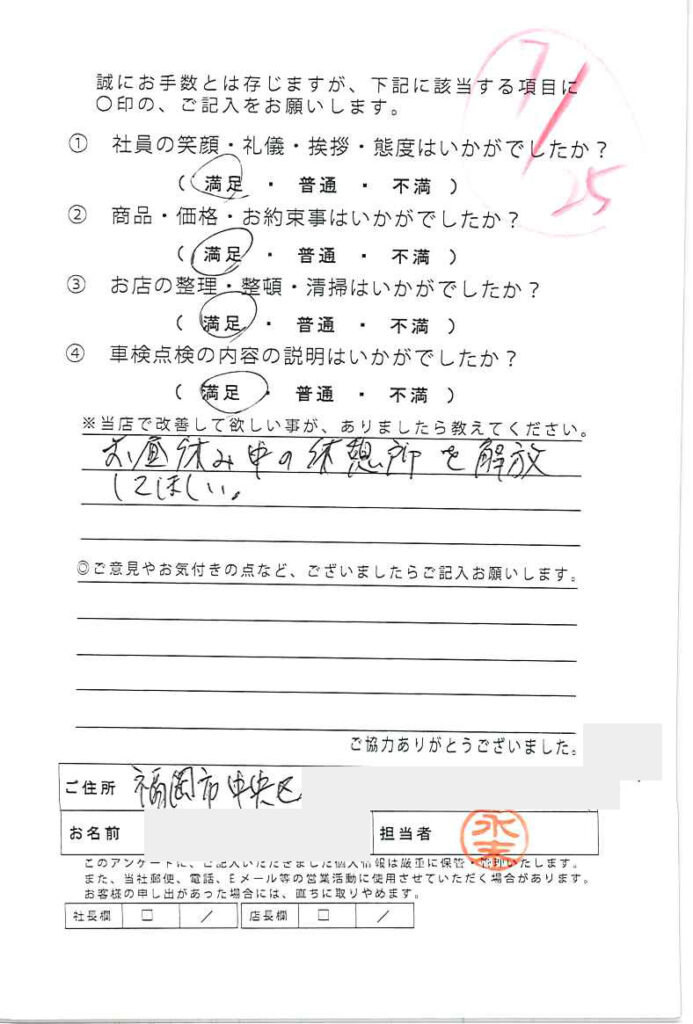 7/25
誠にお手数とは存じますが、下記に該当する項目に
〇印の、ご記入をお願いします。
① 社員の笑顔・礼儀・挨拶・態度はいかがでしたか？
( 満足 ・ 普通 ・ 不満 )
② 商品・価格・お約束事はいかがでしたか？
( 満足 ・ 普通 ・ 不満 )
③ お店の整理・整頓・清掃はいかがでしたか？
( 満足 ・ 普通 ・ 不満 )
④ 車検点検の内容の説明はいかがでしたか？
( 満足 ・ 普通 ・ 不満 )
※当店で改善して欲しい事が、ありましたら教えてください。
お昼休み中の休憩所を解放
してほしい。
◎ご意見やお気付きの点など、ございましたらご記入お願いします。
ご協力ありがとうございました。
ご住所 福岡市中央区
お名前 担当者
このアンケートに、ご記入いただきました個人情報は厳重に保管・管理いたします。
また、当社郵便、電話、Eメール等の営業活動に使用させていただく場合があります。
お客様の申し出があった場合には、直ちに取りやめます。
社長欄 □ / 店長欄 □ /